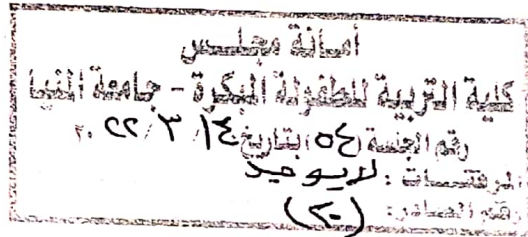 أمانة مجلس
كلية التربية للطفولة المبكرة - جامعة المنيا
رقم الجلسة (٥٤) بتاريخ ١٤/ ٣/ ٢٢ ٢٠
المرفقات : لا يوجد
رقم الصادر: (٢٠)